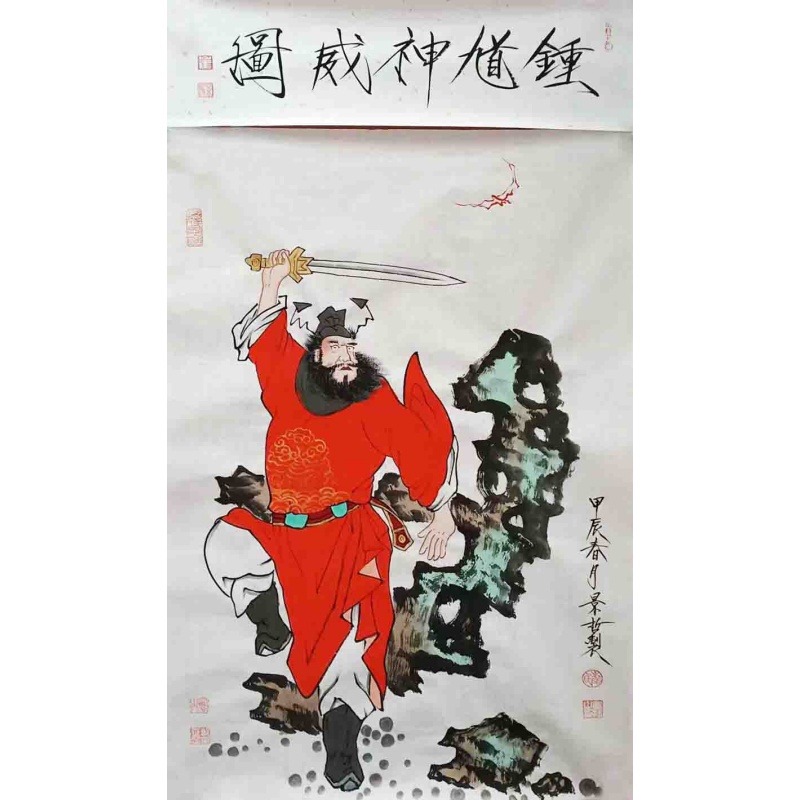 鍾馗神威圖
甲辰春月景哲製